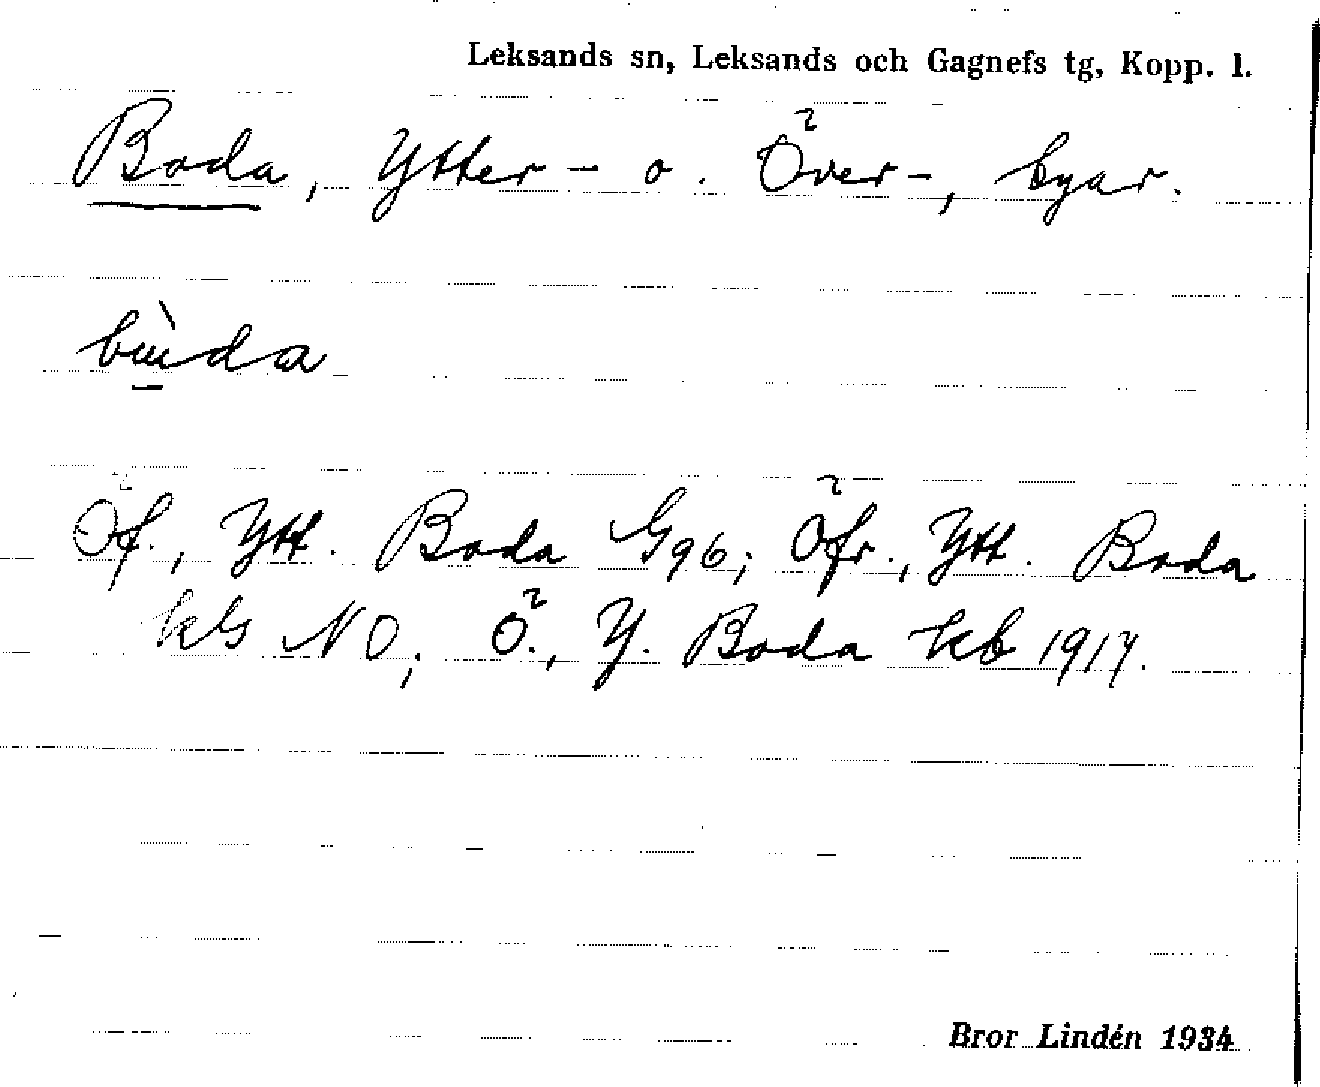 Leksands sn, Leksands och Gagnefs tg, Kopp. l.
Boda, Ytter- o. Över-, byar.
bùda
Öf., Ytt. Boda G96; Öfr., Ytt. Boda
kls NO; Ö., Y. Boda kb 1917.
Bror Lindén 1934